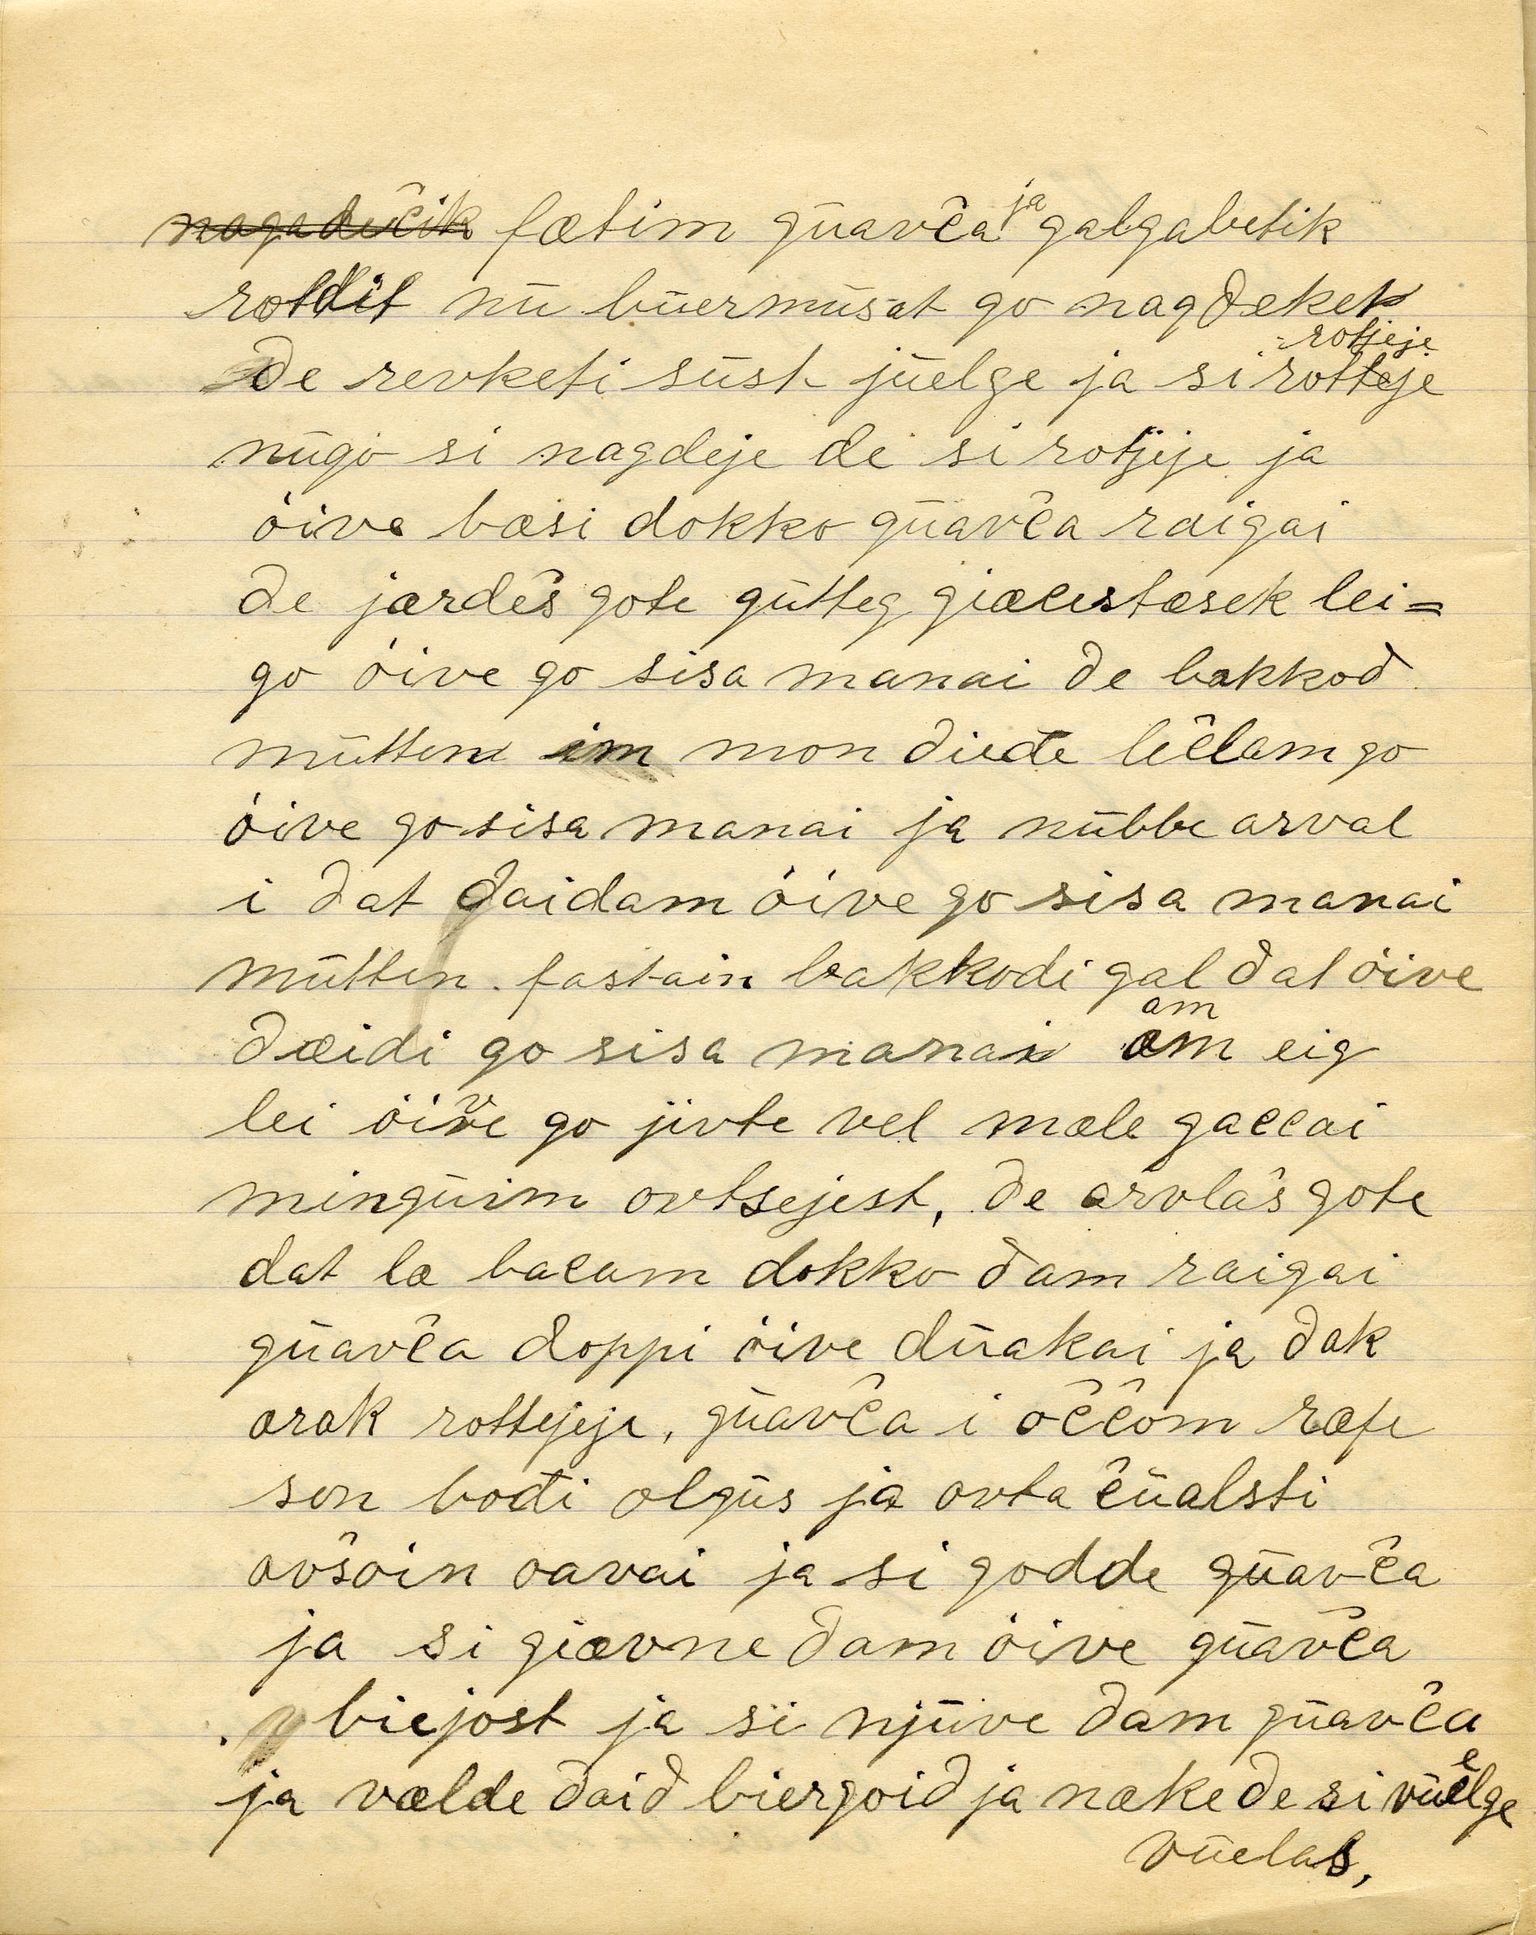 nagadečik fætim gūavča ja galgabetik
rotdit nū būermūsat go nagdekek
de revketi sūst jūelge ja si rotteje rotjeje
nūgo si nagdeje de si rotjeje ja
òive bæsi dokko gūavča raigai
de jærdeš gote gūtteg giæcestæsek lei=
go òive go sisa manai de bakkod
mūttem im mon diede lečlam go
òive go sisa manai ja nūbbe arval
i dat daidam òive go sisa manai
mūtten. fastain bakkodi gal dat òive
dæidi go sisa manai am am eig
lei òive go jivte vel mæle gaccai
mingūim ovtsejest, de arvlaš gote
dat læ bacam dokko dam raigai
gūavča doppi òive dūakai ja dak
arak rottejeje, gūavča i oččom ræfe
son bođi olgūs ja ovta čūalsti
ovšoin oavai ja si godde gūavča
ja si giævne dam òive gūavča
biejost ja si njūve dam gūavča
ja vælde daid biergoid ja næke de si vūelge
vūelas,